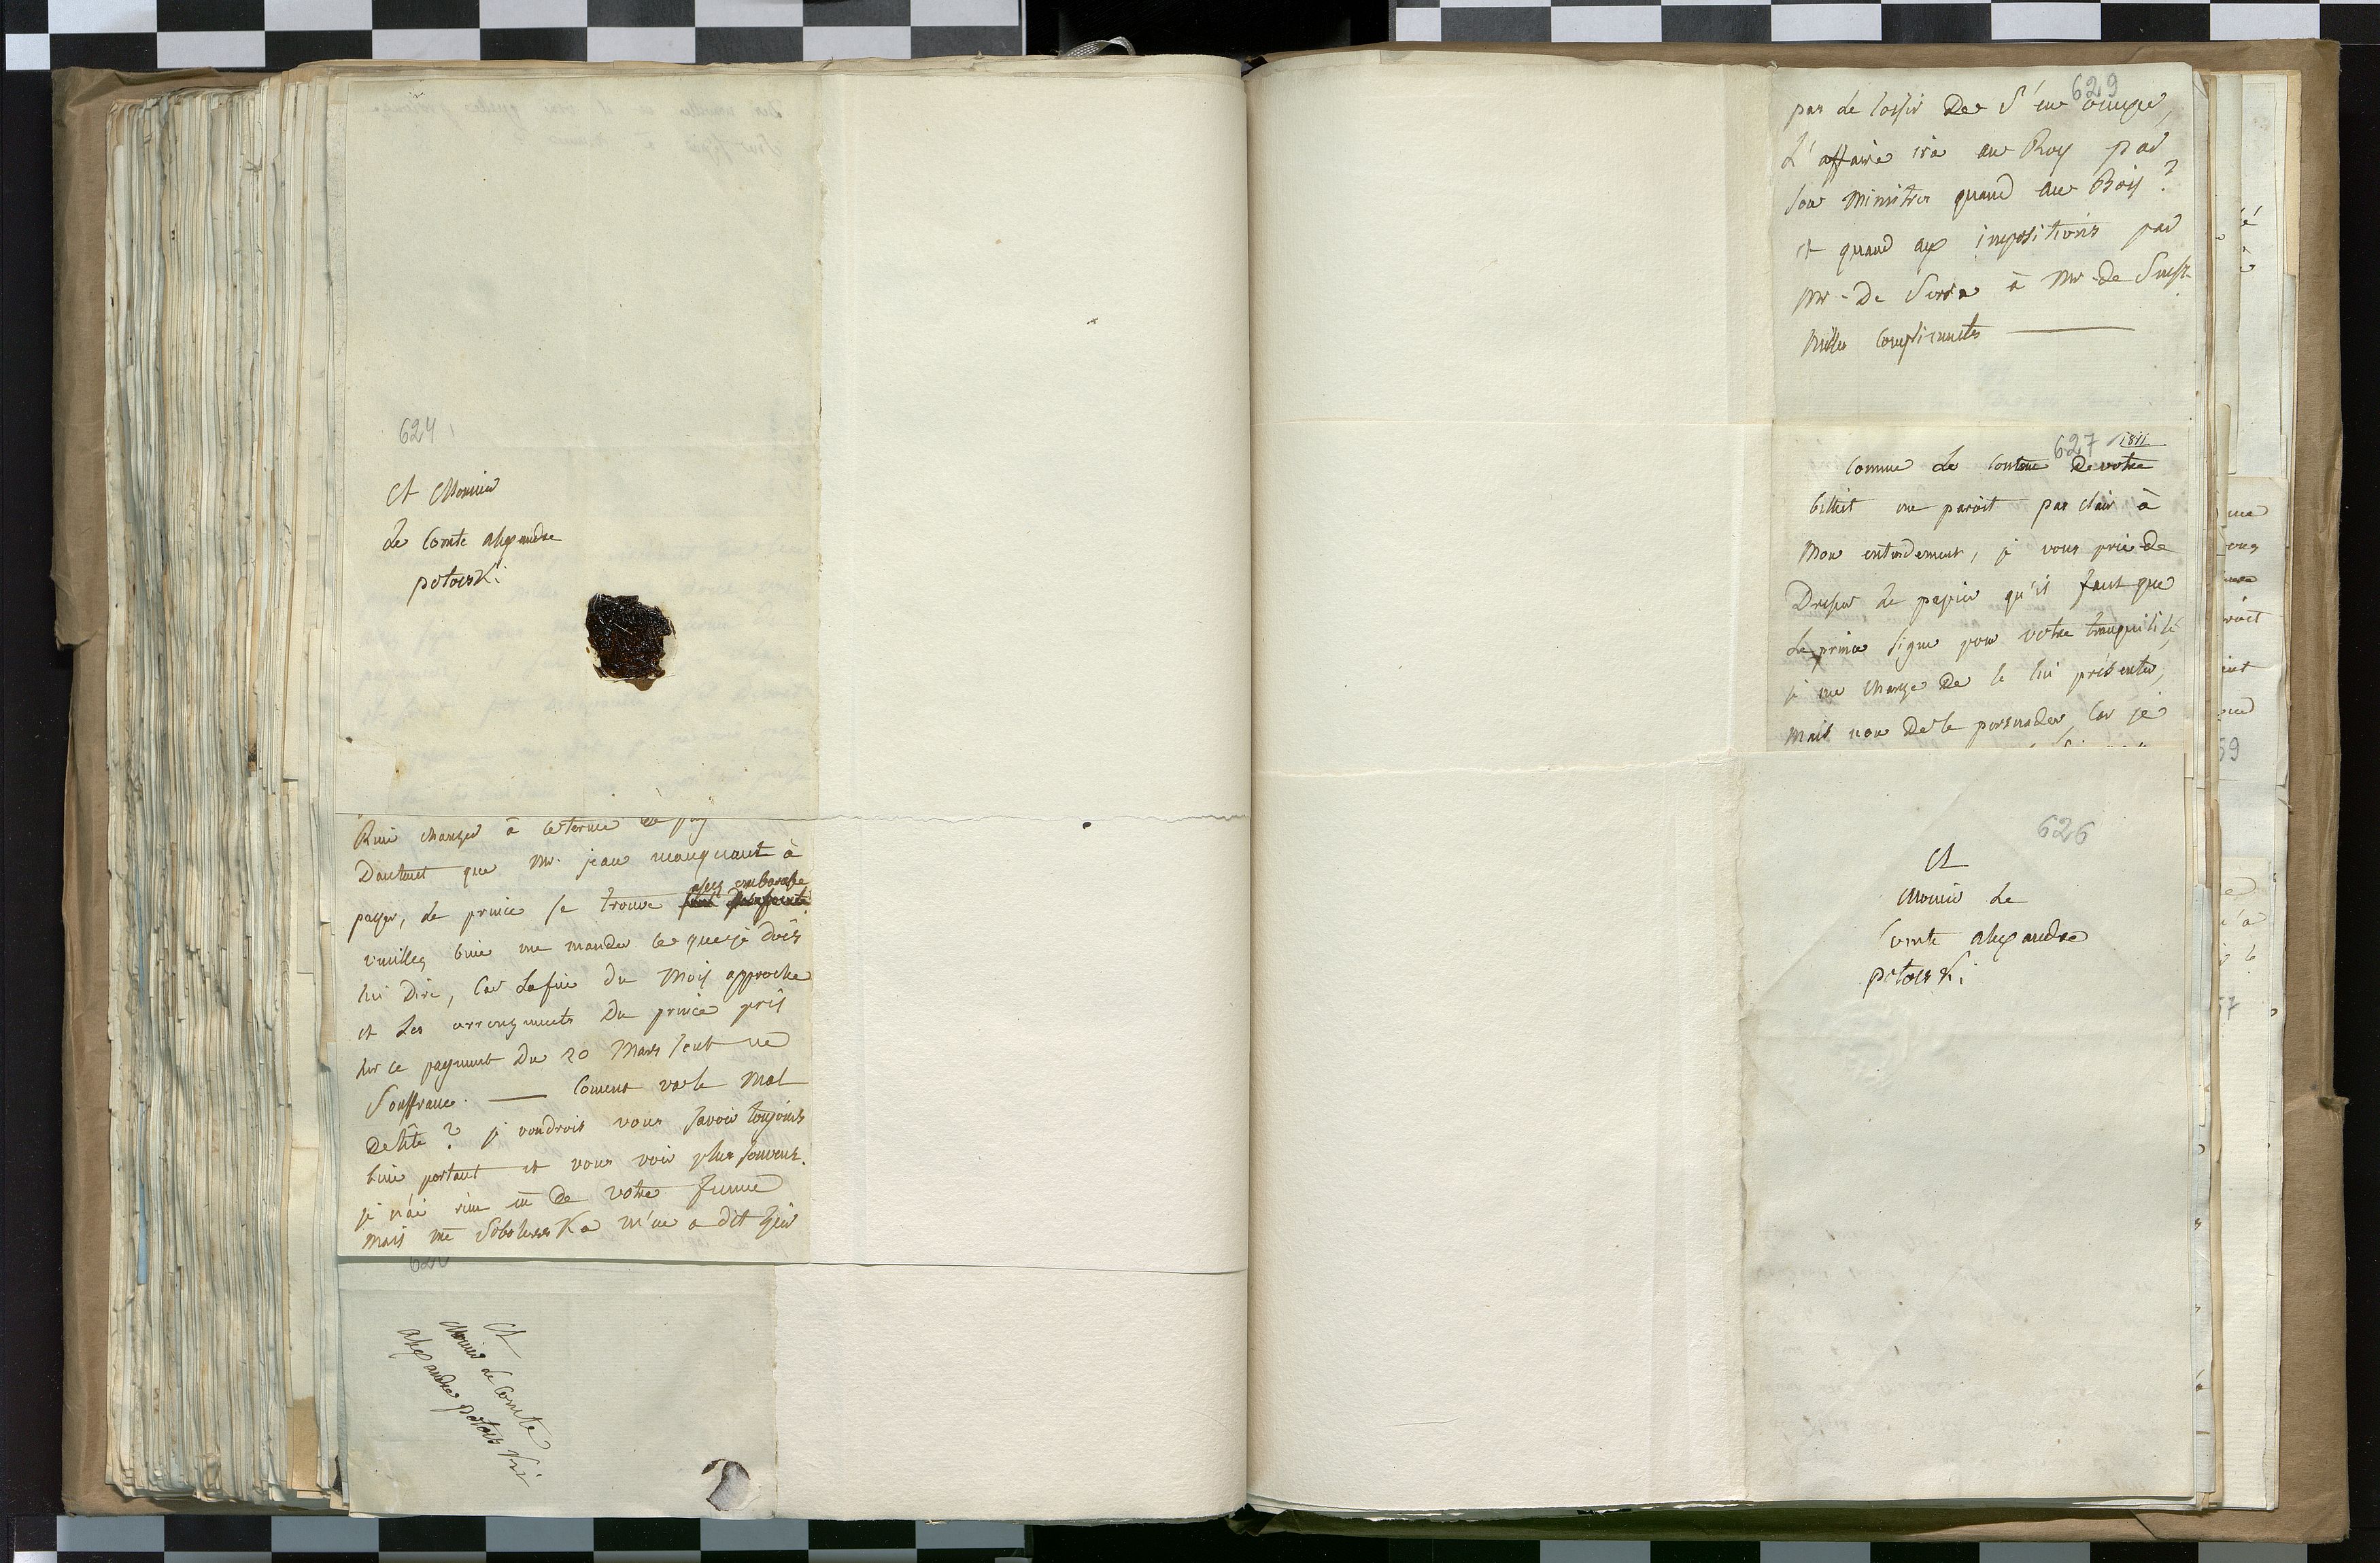 624
A Monsieur
Le Comte alexandre
potocki
Rien changer à le terme de
Dautant que Mr. jean manquant à
payer, le prince se trouve assez embarasse
veuillez bien me mander ce que je dois
lui Dire, Car la fin du Mois approche
et Les arrengments Du prince pris
sur ce payment Du 20 Mars sont en
Souffrance. — Coment va le Mal
De tête ? je voudrois vous savoir toujours
bien portant et vous voir plus souvent.
je n'ai rien sû de votre femme
Mais Me Sobolewska m'en a dit hier
A
Monsieur Le Comte
Alexandre potocki
629
pas Le loisir De S'en occuper,
L'affaire ira au Roy par
son Ministre quand au Bois ?
et quand aux impositions par
Mr. De Serra à Mr. de
Milles Compliments —
627 1811
Comme Le Contenu De votre
billiet me paroit pas clair à
Mon entendement, je vous prie De
Dresser le papier qu'il faut que
Le prince signe pour votre tranquilité,
je me charge De le lui présenter,
Mais non De le persuader, Car je
626
A
Monsieur Le
Comte alexandre
potocki